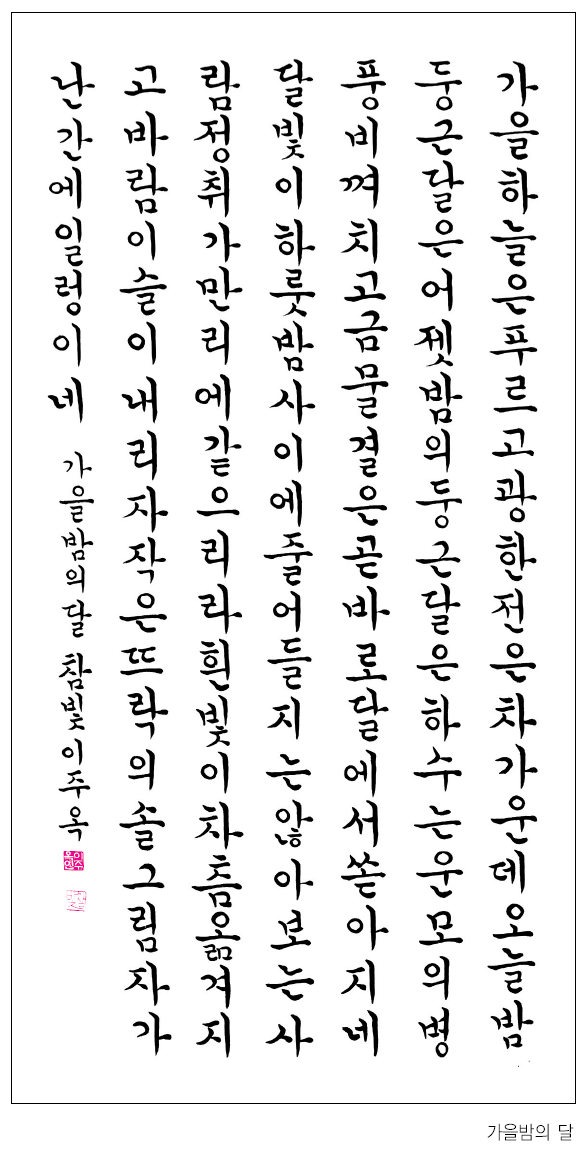 가을하늘은푸르고광한전은차가운데오늘밤
둥근달은어젯밤의둥근달은하수는운모의병
풍비껴치고금물결은곧바로달에서쏟아지네
달빛이하룻밤사이에줄어들지는않아보는사
람정취가만리에같으리라흰빛이차츰옮겨지
고바람이슬이내리자작은뜨락의솔그림자가
난간에일렁이네 가을밤의달 참빛이주옥
가을밤의 달